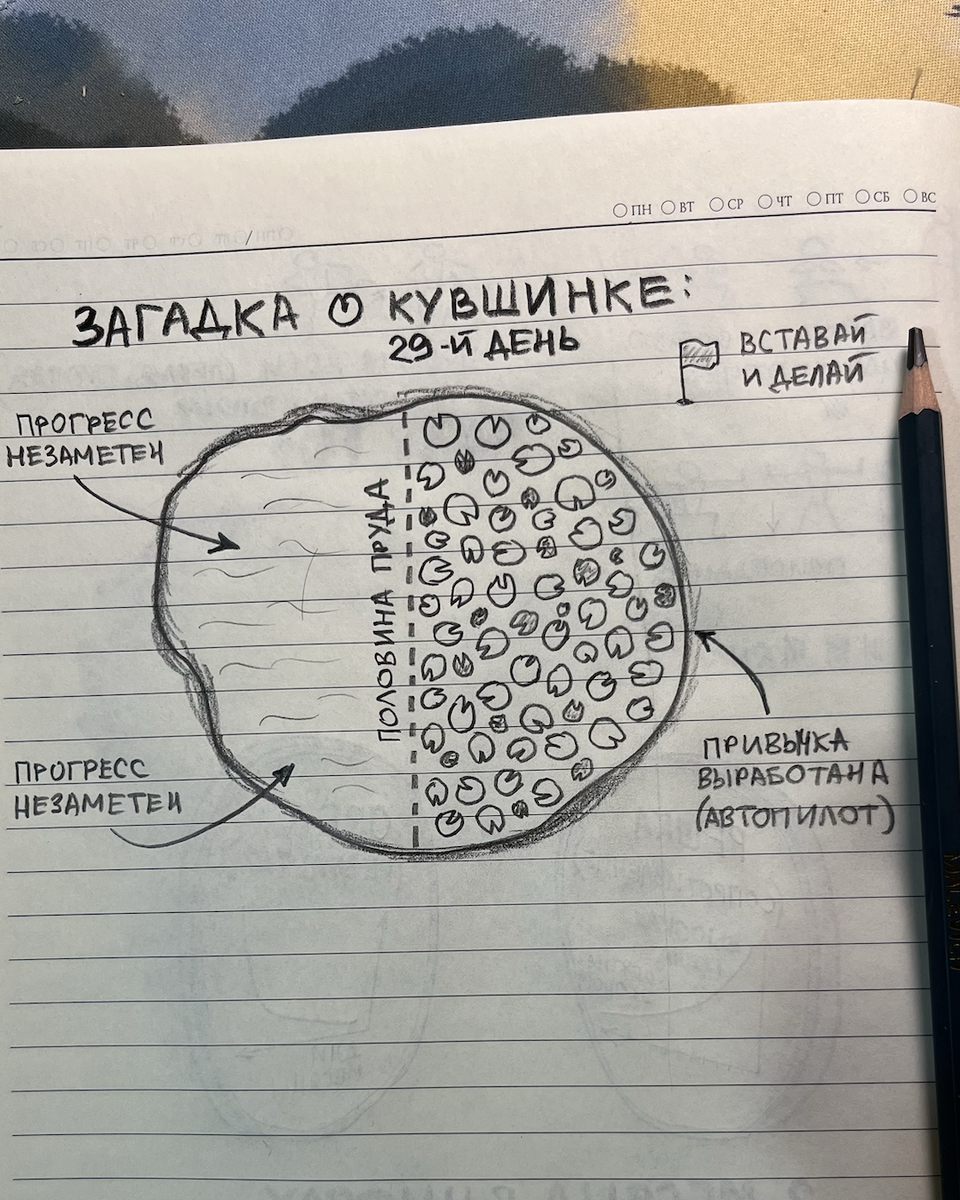 ПН ВТ СР ЧТ ПТ СБ ВС
ЗАГАДКА О КУВШИНКЕ:
29-Й ДЕНЬ
ВСТАВАЙ
И ДЕЛАЙ
ПРОГРЕСС
НЕЗАМЕТЕН
ПОЛОВИНА ПРУДА
ПРОГРЕСС
НЕЗАМЕТЕН
ПРИВЫЧКА
ВЫРАБОТАНА
(АВТОПИЛОТ)